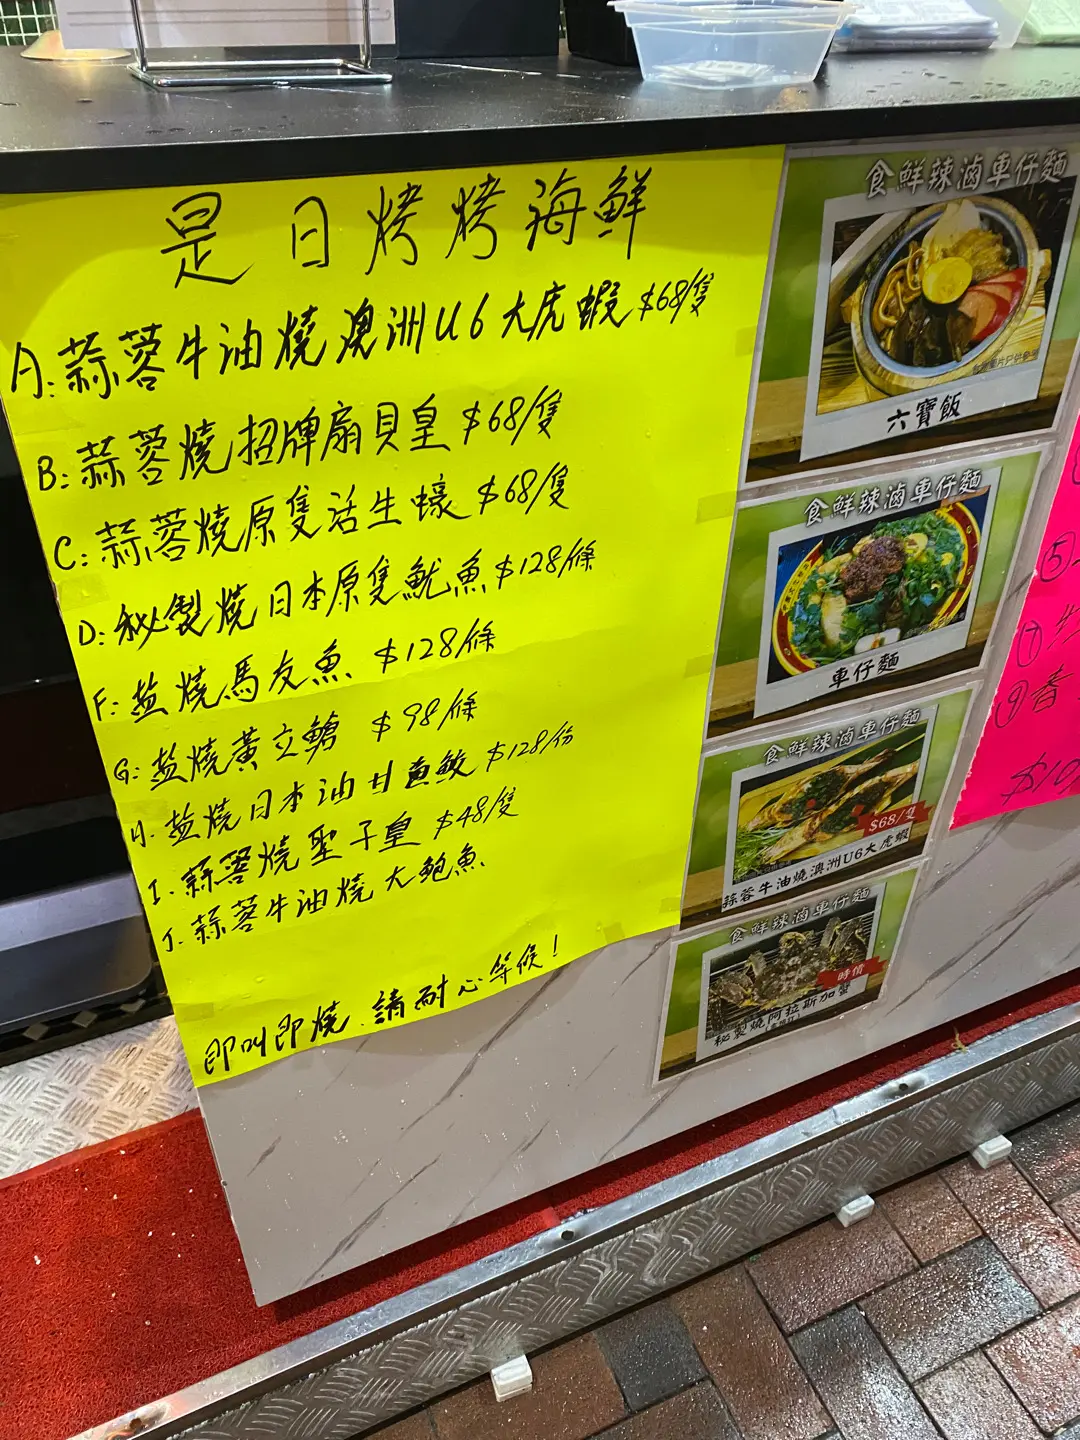 是日烤烤海鮮
A:蒜蓉牛油燒澳洲U6大虎蝦$68/隻
B:蒜蓉燒招牌扇貝皇$68/隻
C:蒜蓉燒原隻活生蠔$68/隻
D:秘製燒日本原隻魷魚$128/條
F:盐燒馬友魚 $128/條
G:盐燒黃立鯧 $98/條
H.盐燒日本油甘魚鮫$128/份
I.蒜蓉燒聖子皇 $48/隻
J.蒜蓉牛油燒大鮑魚
即叫即燒.請耐心等候!
食鮮辣滷車仔麵
六寶飯
食鮮辣滷車仔麵
車仔麵
食鮮辣滷車仔麵
$68/隻
蒜蓉牛油燒澳洲U6大虎蝦
食鮮辣滷車仔麵
時價
秘製燒阿拉斯加蟹
⑤
⑦牛
⑨香
$10